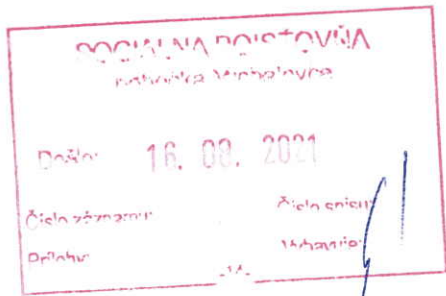 SOCIÁLNA POISŤOVŇA
pobočka Michalovce
Došlo: 16. 2021
Číslo záznamu: Číslo spisu:
Prílohy: Vybavuje: